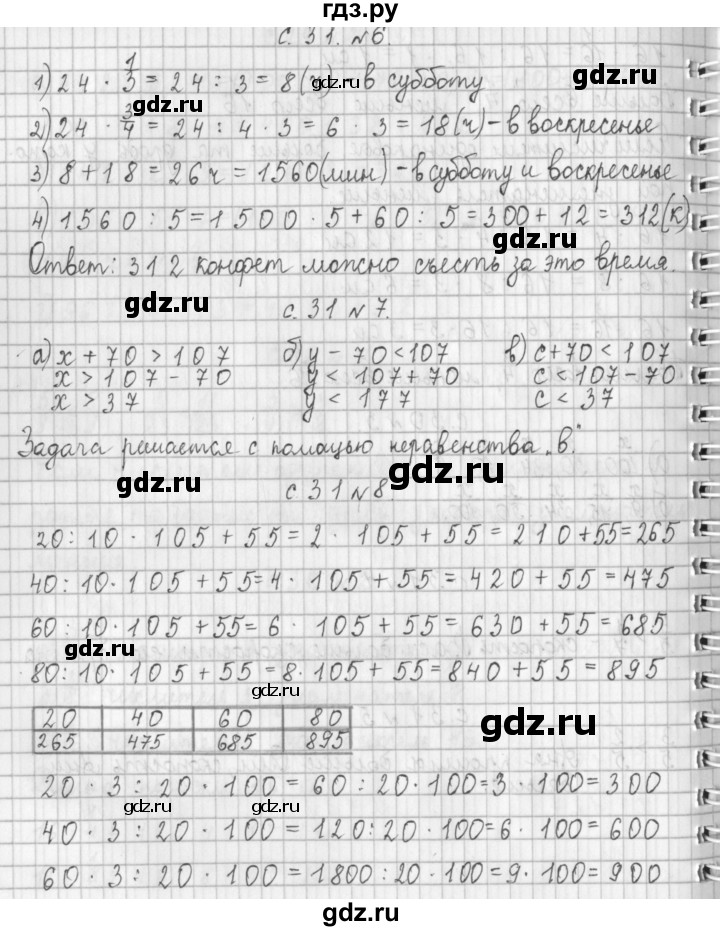 гдз.ру
с. 31. №6.
1) 24 · 1/3 = 24 : 3 = 8 (ч) - в субботу
gdz.ru
2) 24 · 3/4 = 24 : 4 · 3 = 6 · 3 = 18 (ч) - в воскресенье
3) 8 + 18 = 26 ч = 1560 (мин) - в субботу и воскресенье
4) 1560 : 5 = 1500 · 5 + 60 : 5 = 300 + 12 = 312 (к)
gdz.ru
Ответ: 312 конфет можно съесть за это время.
gdz.ru
с. 31 №7.
а) x + 70 > 107 б) y - 70 < 107 в) c + 70 < 107
x > 107 - 70 y < 107 + 70 c < 107 - 70
x > 37 y < 177 c < 37
Задача решается с помощью неравенства „в".
gdz.ru
gdz.ru
с 31 №8
20 : 10 · 105 + 55 = 2 · 105 + 55 = 210 + 55 = 265
gdz.ru
40 : 10 · 105 + 55 = 4 · 105 + 55 = 420 + 55 = 475
60 : 10 · 105 + 55 = 6 · 105 + 55 = 630 + 55 = 685
gdz.ru
80 : 10 · 105 + 55 = 8 · 105 + 55 = 840 + 55 = 895
gdz.ru
20 40 60 80
265 475 685 895
gdz.ru
20 · 3 : 20 · 100 = 60 : 20 · 100 = 3 · 100 = 300
gdz.ru gdz.ru
40 · 3 : 20 · 100 = 120 : 20 · 100 = 6 · 100 = 600
60 · 3 : 20 · 100 = 1800 : 20 · 100 = 9 · 100 = 900
gdz.ru